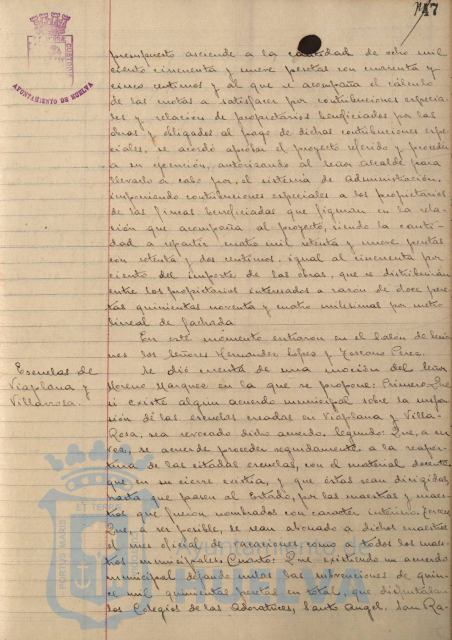 47
AYUNTAMIENTO DE HUELVA
presupuesto asciende a la cantidad de ocho mil
ciento cincuenta y nueve pesetas con cuarenta y
cinco centimos y al que se acompaña el cálculo
de las cuotas a satisfacer por contribuciones especia-
les y relación de propietarios beneficiados por las
obras y obligados al pago de dichas contribuciones espe-
ciales, se acordó aprobar el proyecto referido y proceder
a su ejecución, autorizando al señor Alcalde para
llevarlo a cabo por el sistema de Administración,
imponiendo contribuciones especiales a los propietarios
de las fincas beneficiadas que figuran en la rela-
ción que acompaña al proyecto, siendo la canti-
dad a repartir cuatro mil setenta y nueve pesetas
con setenta y dos centimos, igual al cincuenta por
ciento del importe de las obras, que se distribuirán
entre los propietarios interesados a razón de doce pese-
tas quinientas noventa y cuatro milesimas por metro
lineal de fachada
En este momento entraron en el salón de sesio-
nes los señores Hernandez López y Toscano Perez.
Escuelas de
Viaplana y
Villarrosa.
Se dió cuenta de una moción del señor
Moreno Marquez en la que se propone: Primero: Que
si existe algun acuerdo municipal sobre la supre-
sión de las escuelas creadas en Viaplana y Villa-
Rosa, sea revocado dicho acuerdo. Segundo: Que, a su
vez, se acuerde proceder seguidamente a la reaper-
tura de las citadas escuelas, con el material docente
que en su cierre existia, y que éstas sean dirigidas,
hasta que pasen al Estado, por las maestras y maes-
tros que fueron nombrados con caracter interino. Tercero:
Que, a ser posible, se sean abonado a dichos maestros
el mes oficial de vacaciones como a todos los maes-
tros municipales. Cuarto: Que existiendo un acuerdo
municipal dejando nulas las subvenciones de quin-
ce mil quinientas pesetas en total, que disfrutaban
los Colegios de las Adoratrices, Santo Angel, San Ra-
PORTUS MARIS ET TERRAE
Ayuntamiento de
Huelva